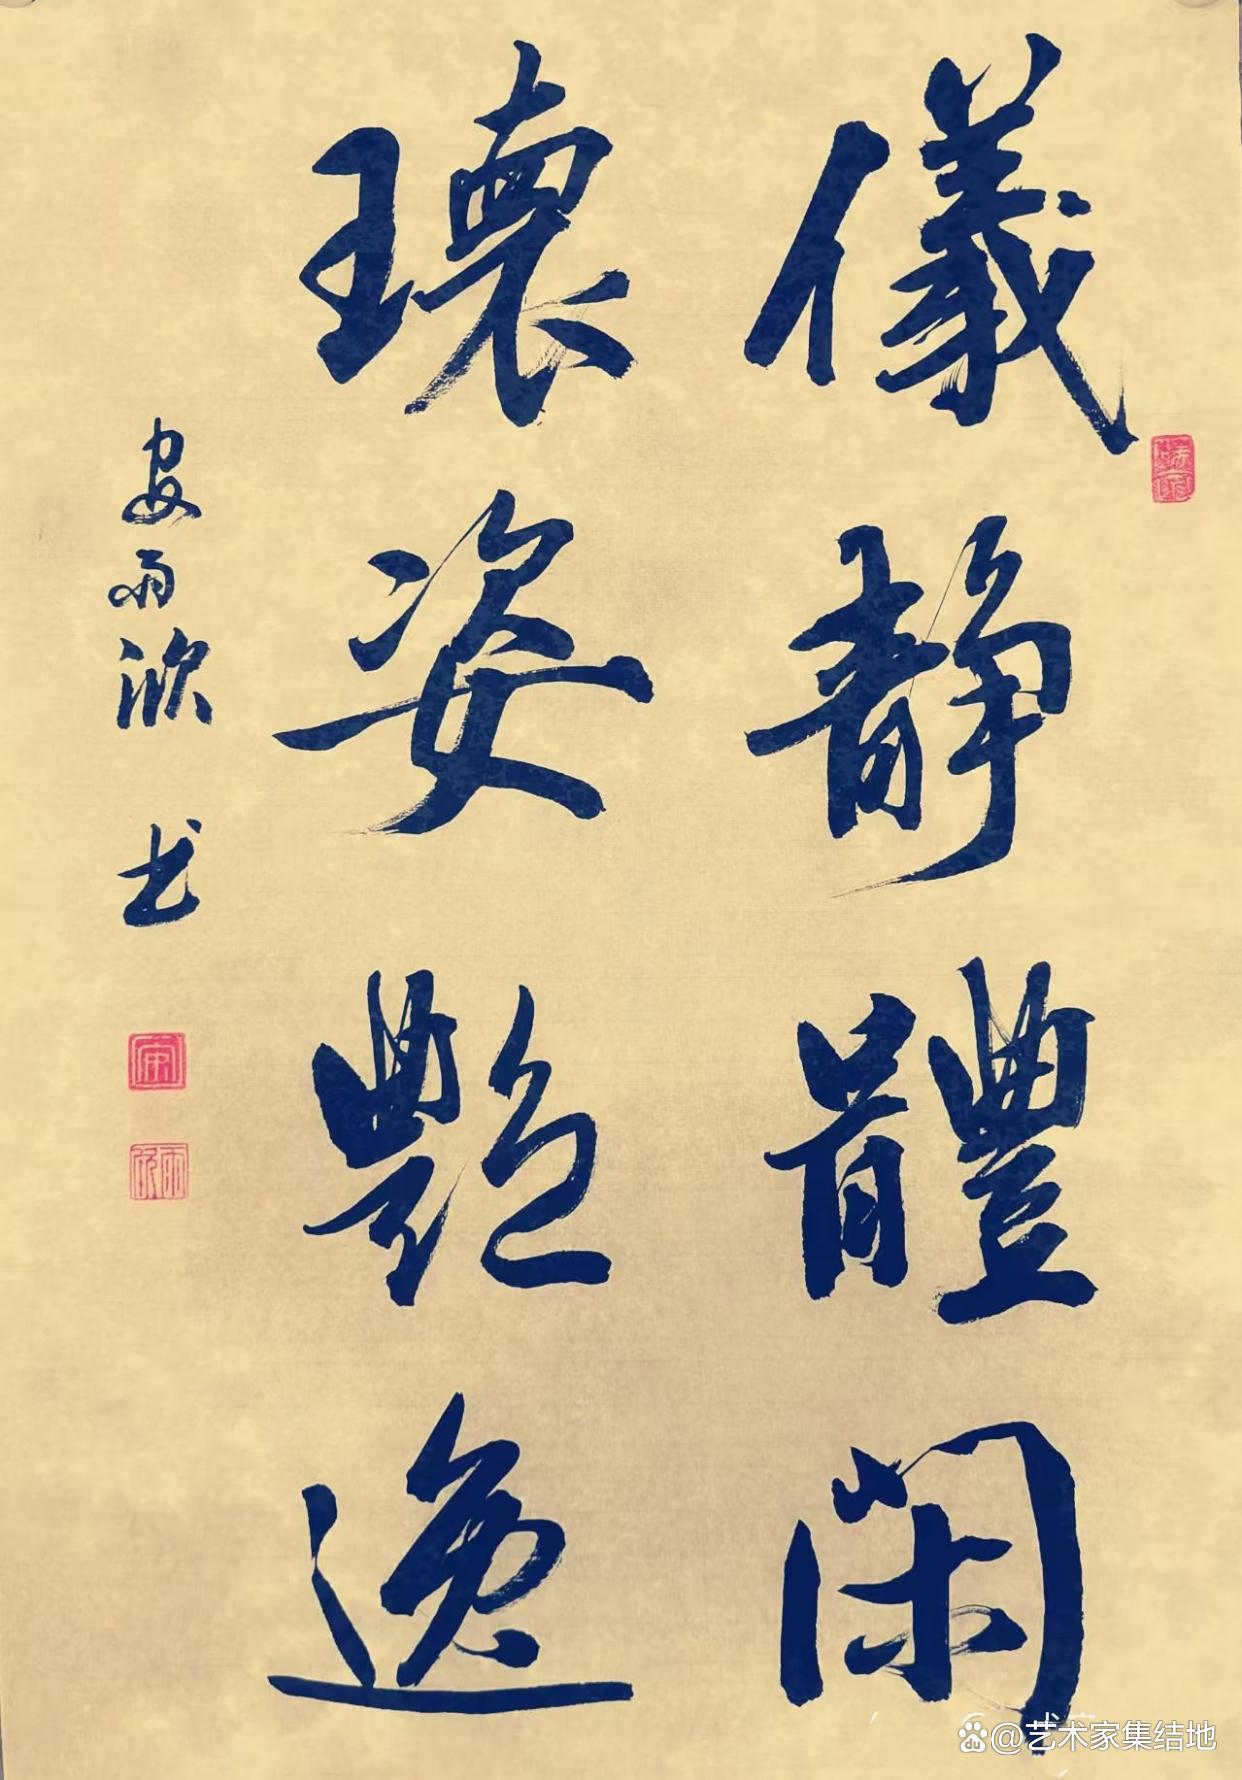 儀靜體閑
瓌姿艷逸
安雨欣书
@艺术家集结地